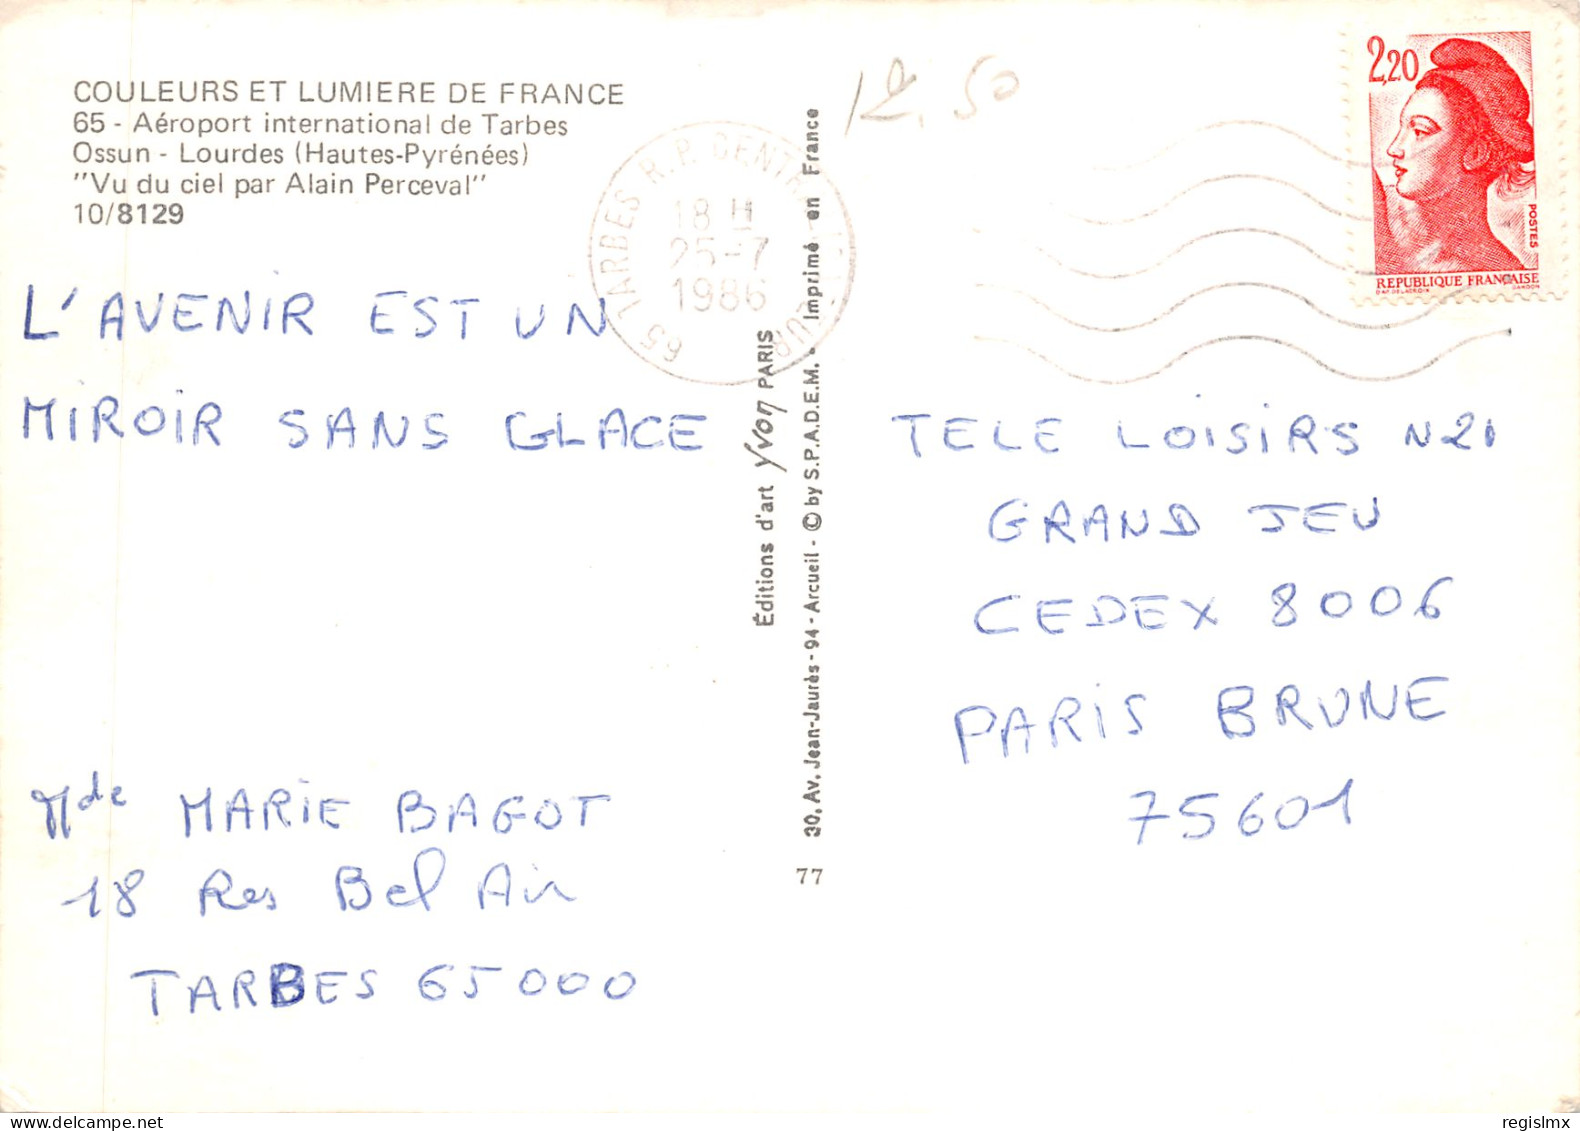 COULEURS ET LUMIERE DE FRANCE
65 - Aéroport international de Tarbes
Ossun - Lourdes (Hautes-Pyrénées)
"Vu du ciel par Alain Perceval"
10/8129
L'AVENIR EST UN
MIROIR SANS GLACE
Mde MARIE BAGOT
18 Res Bel Air
TARBES 65000
65 TARBES R.P.
18 H
25-7
1986
Éditions d'art Yvon PARIS
30, Av. Jean-Jaurès - 94 - Arcueil - © by S.P.A.D.E.M. • Imprimé en France
77
12.50
2,20
POSTES
REPUBLIQUE FRANÇAISE
D'AP. DELACROIX GANDON
TELE LOISIRS N21
GRAND JEU
CEDEX 8006
PARIS BRUNE
75601
regislmx